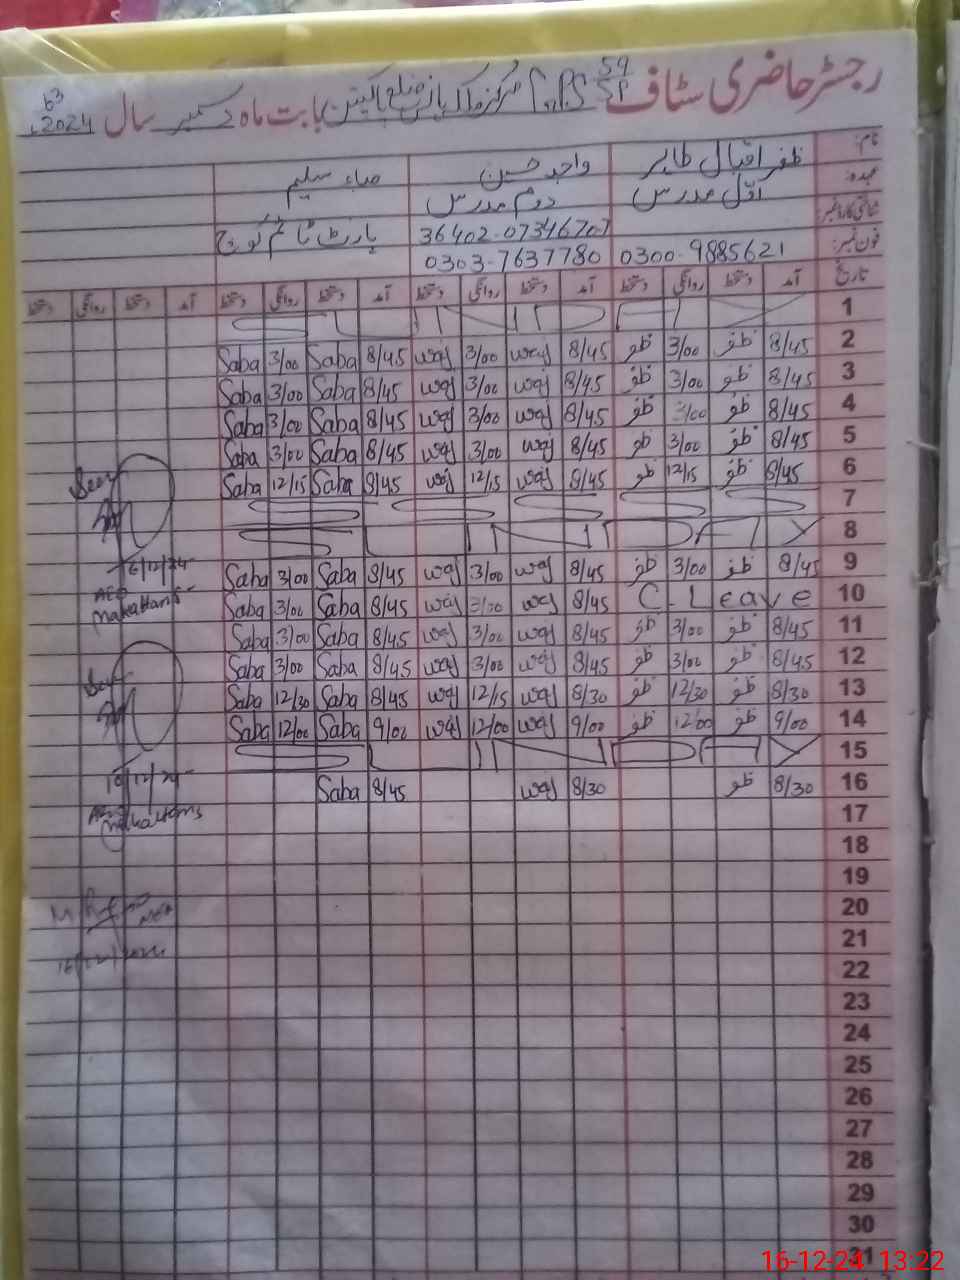 رجسٹر حاضری سٹاف G.P.S 59/SP مرکز ملکہ ہانس ضلع پاکپتن بابت ماہ دسمبر سال 2024
63
نام: ظفر اقبال طاہر واجد حسین صباء سلیم
عہدہ: اوّل مدرس دوم مدرس
شناختی کارڈ نمبر: 36402-0734670 پارٹ ٹائم کوچ
فون نمبر: 0300-9885621 0303-7637780
تاریخ آمد دستخط روانگی دستخط آمد دستخط روانگی دستخط آمد دستخط روانگی دستخط آمد دستخط روانگی دستخط
1
2 8/45 ظفر 3/00 ظفر 8/45 waj 3/00 waj 8/45 Saba 3/00 Saba
3 8/45 ظفر 3/00 ظفر 8/45 waj 3/00 waj 8/45 Saba 3/00 Saba
4 8/45 ظفر 3/00 ظفر 8/45 waj 3/00 waj 8/45 Saba 3/00 Saba
5 8/45 ظفر 3/00 ظفر 8/45 waj 3/00 waj 8/45 Saba 3/00 Saba
6 8/45 ظفر 12/15 ظفر 8/45 waj 12/15 waj 8/45 Saba 12/15 Saba
7
8
9 8/45 ظفر 3/00 ظفر 8/45 waj 3/00 waj 8/45 Saba 3/00 Saba
10 C. Leave 8/45 waj 3/00 waj 8/45 Saba 3/00 Saba
11 8/45 ظفر 3/00 ظفر 8/45 waj 3/00 waj 8/45 Saba 3/00 Saba
12 8/45 ظفر 3/00 ظفر 8/45 waj 3/00 waj 8/45 Saba 3/00 Saba
13 8/30 ظفر 12/30 ظفر 8/30 waj 12/15 waj 8/45 Saba 12/30 Saba
14 9/00 ظفر 12/00 ظفر 9/00 waj 12/00 waj 9/00 Saba 12/00 Saba
15
16 8/30 ظفر 8/30 waj 8/45 Saba
17
18
19
20
21
22
23
24
25
26
27
28
29
30
31
Seen
6/12/24
AEO
Makattans
Seen
10/12/24
AEO
Makattans
MEA
16/12/2024
16-12-24 13:22